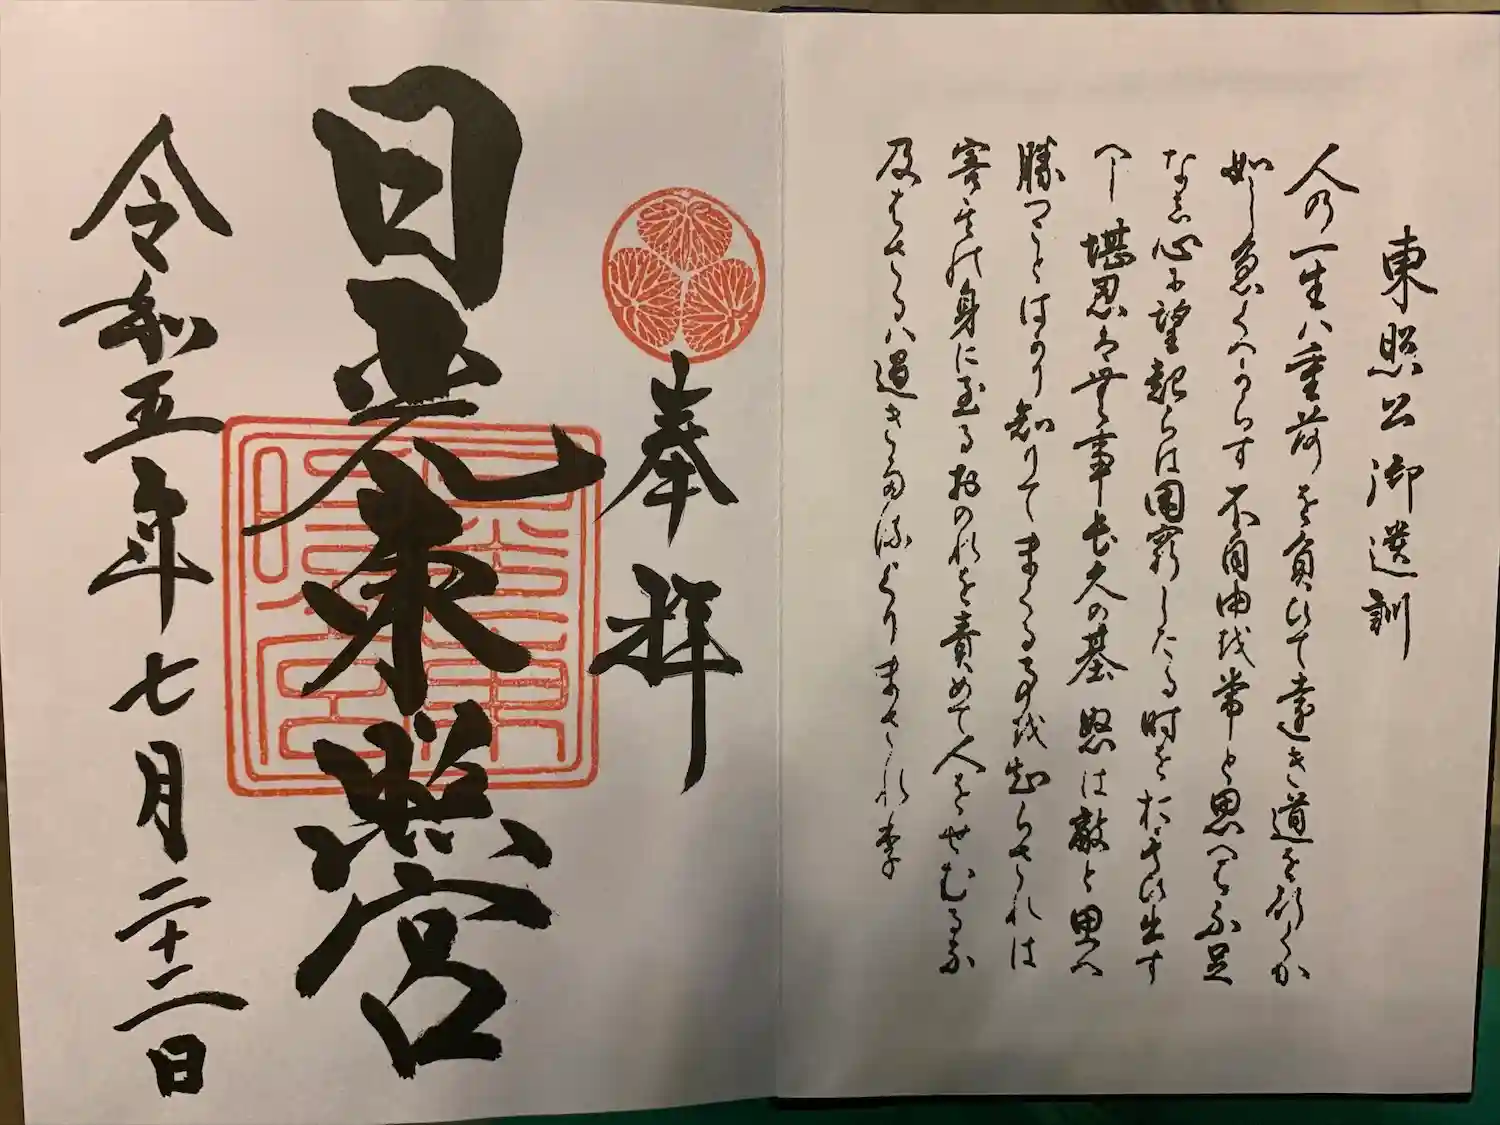 東照公御遺訓
人の一生ハ重荷を負ひて遠き道を行くか
如し急くへからす不自由を常と思へは不足
なし心に望起らは困窮したる時をおもひ出す
へし堪忍は無事長久の基怒は敵と思へ
勝つことはかり知りてまくる事を知らされは
害其の身に至るおのれを責めて人をせむるな
及はさるハ過きたるよりまされり
奉拝
日光東照宮
日光東照宮
令和五年七月二十二日